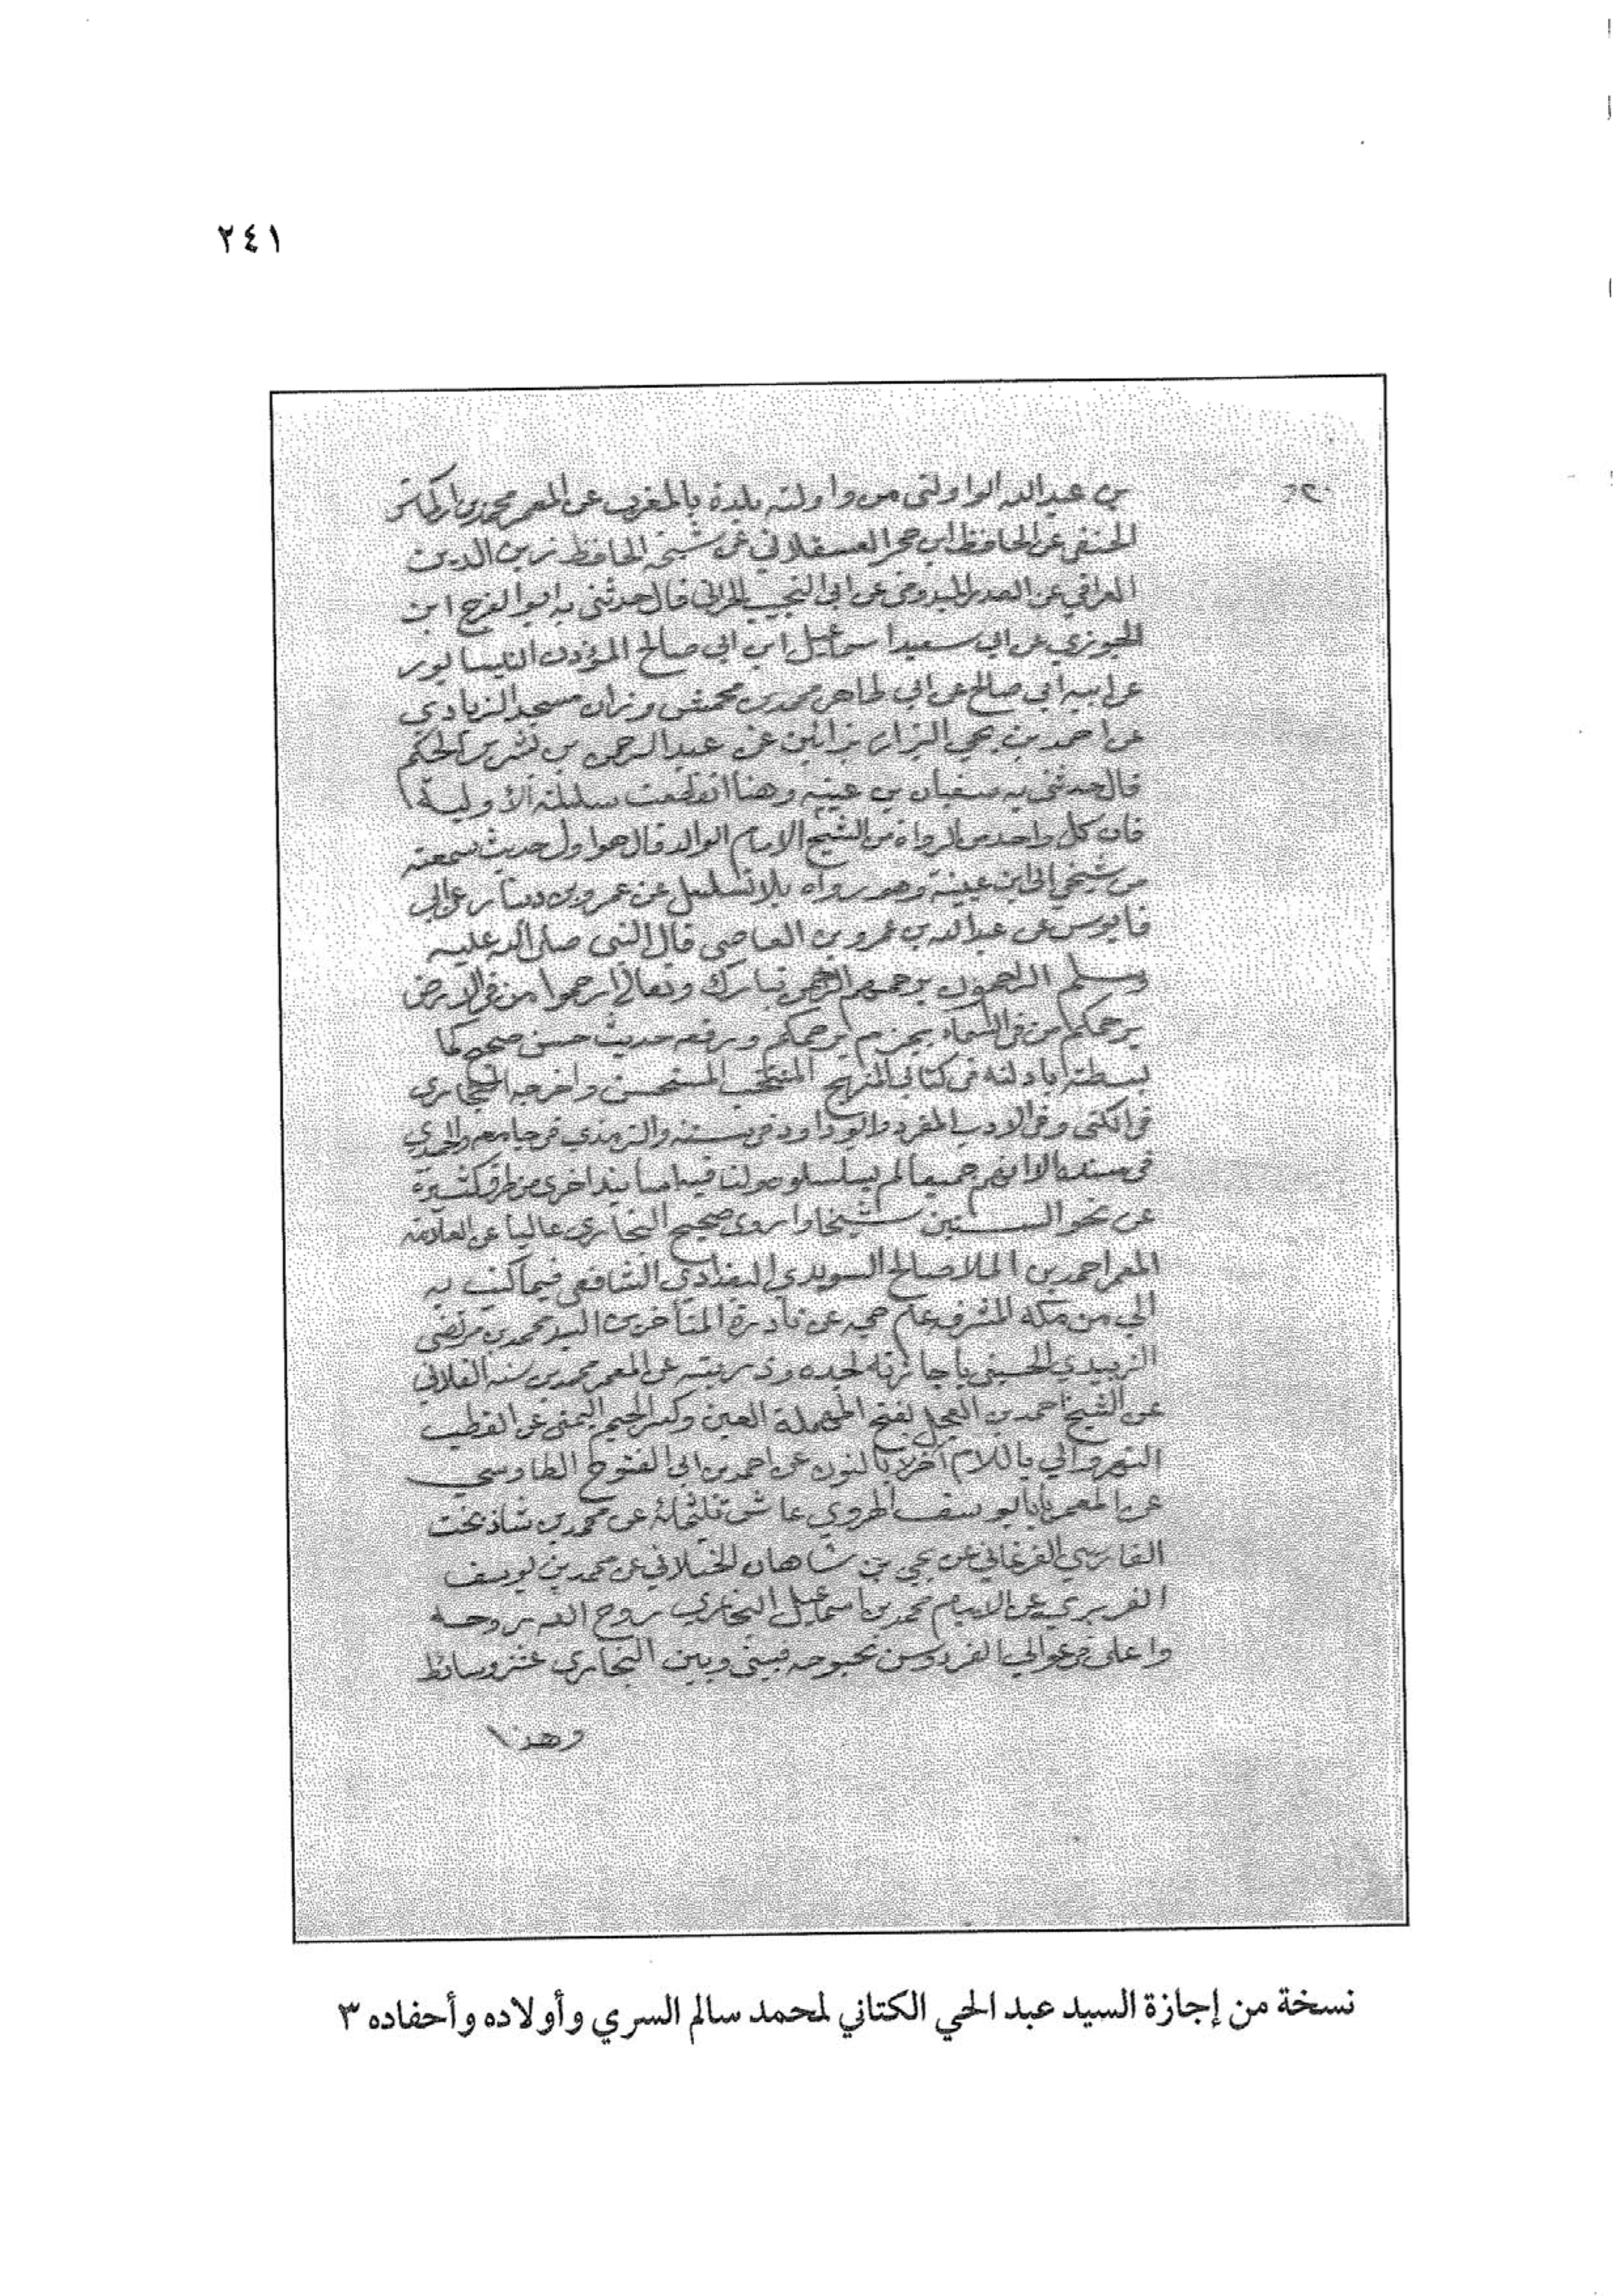 ٢٤١
بن عبد الله الواولتي من واولته بلدة بالمغرب عن المعمر محمد بن
الحنفي عن الحافظ ابن حجر العسقلاني عن شيخه الحافظ زين الدين
العراقي عن الصدر الميدومي عن ابي النجيب الحراني قال حدثني به ابو الفرج ابن
الجوزي عن ابي سعيد اسماعيل ابن ابي صالح المؤذن النيسابور
عن ابيه ابي صالح عن ابي طاهر محمد بن محمش وزان مسجد الزيادي
عن احمد بن يحي البزاز بزايين عن عبد الرحمن بن بشر بن الحكم
قال حدثني به سفيان بن عيينه وهنا انقطعت سلسلة الأولية
فان كل واحد من الرواة من الشيخ الامام الوالد قال هو اول حديث سمعته
من شيخي الى ابن عيينة وهو رواه بلا تسلسل عن عمرو بن دينار عن ابي
قابوس عن عبد الله بن عمرو بن العاصي قال النبي صلى الله عليه
وسلم الراحمون يرحمهم الرحمن تبارك وتعالى ارحموا من في الارض
يرحمكم من في السماء بجزم يرحمكم ورفعه حديث حسن صحيح كما
بسطته بادلته في كتابي المنهج المنتخب المستحسن واخرجه البخاري
في الكنى وفي الادب المفرد وابو داود في سننه والترمذي في جامعه والحميدي
في مسنده الا انهم جميعا لم يسلسلوه ولنا فيه اسانيد اخرى من طرق كثيرة
عن نحو الستين شيخا واروى صحيح البخاري عاليا عن العلامة
المعمر احمد بن الملا صالح السويدي البغدادي الشافعي فيما كتب به
الي من مكة المشرفة عام حجه عن نادرة المتأخرين السيد محمد بن مرتضى
الزبيدي الحسيني باجازته لجده وذريته عن المعمر محمد بن سنه الفلاني
عن الشيخ احمد بن العجل بفتح المهملة العين وكسر الجيم اليمني عن القطب
النهروالي باللام آخره لا بالنون عن احمد بن ابي الفتوح الطاوسي
عن المعمر بابا يوسف الهروي عاش ثلثمائة عن محمد بن شاذبخت
الفارسي الفرغاني عن يحي بن شاهان الختلاني عن محمد بن يوسف
الفربري عن الامام محمد بن اسماعيل البخاري روح الله روحه
واعلى في عوالي الفردوس بحبوحه فبيني وبين البخاري عشر وسائط
وهذا
نسخة من إجازة السيد عبد الحي الكتاني لمحمد سالم السري وأولاده وأحفاده ٣